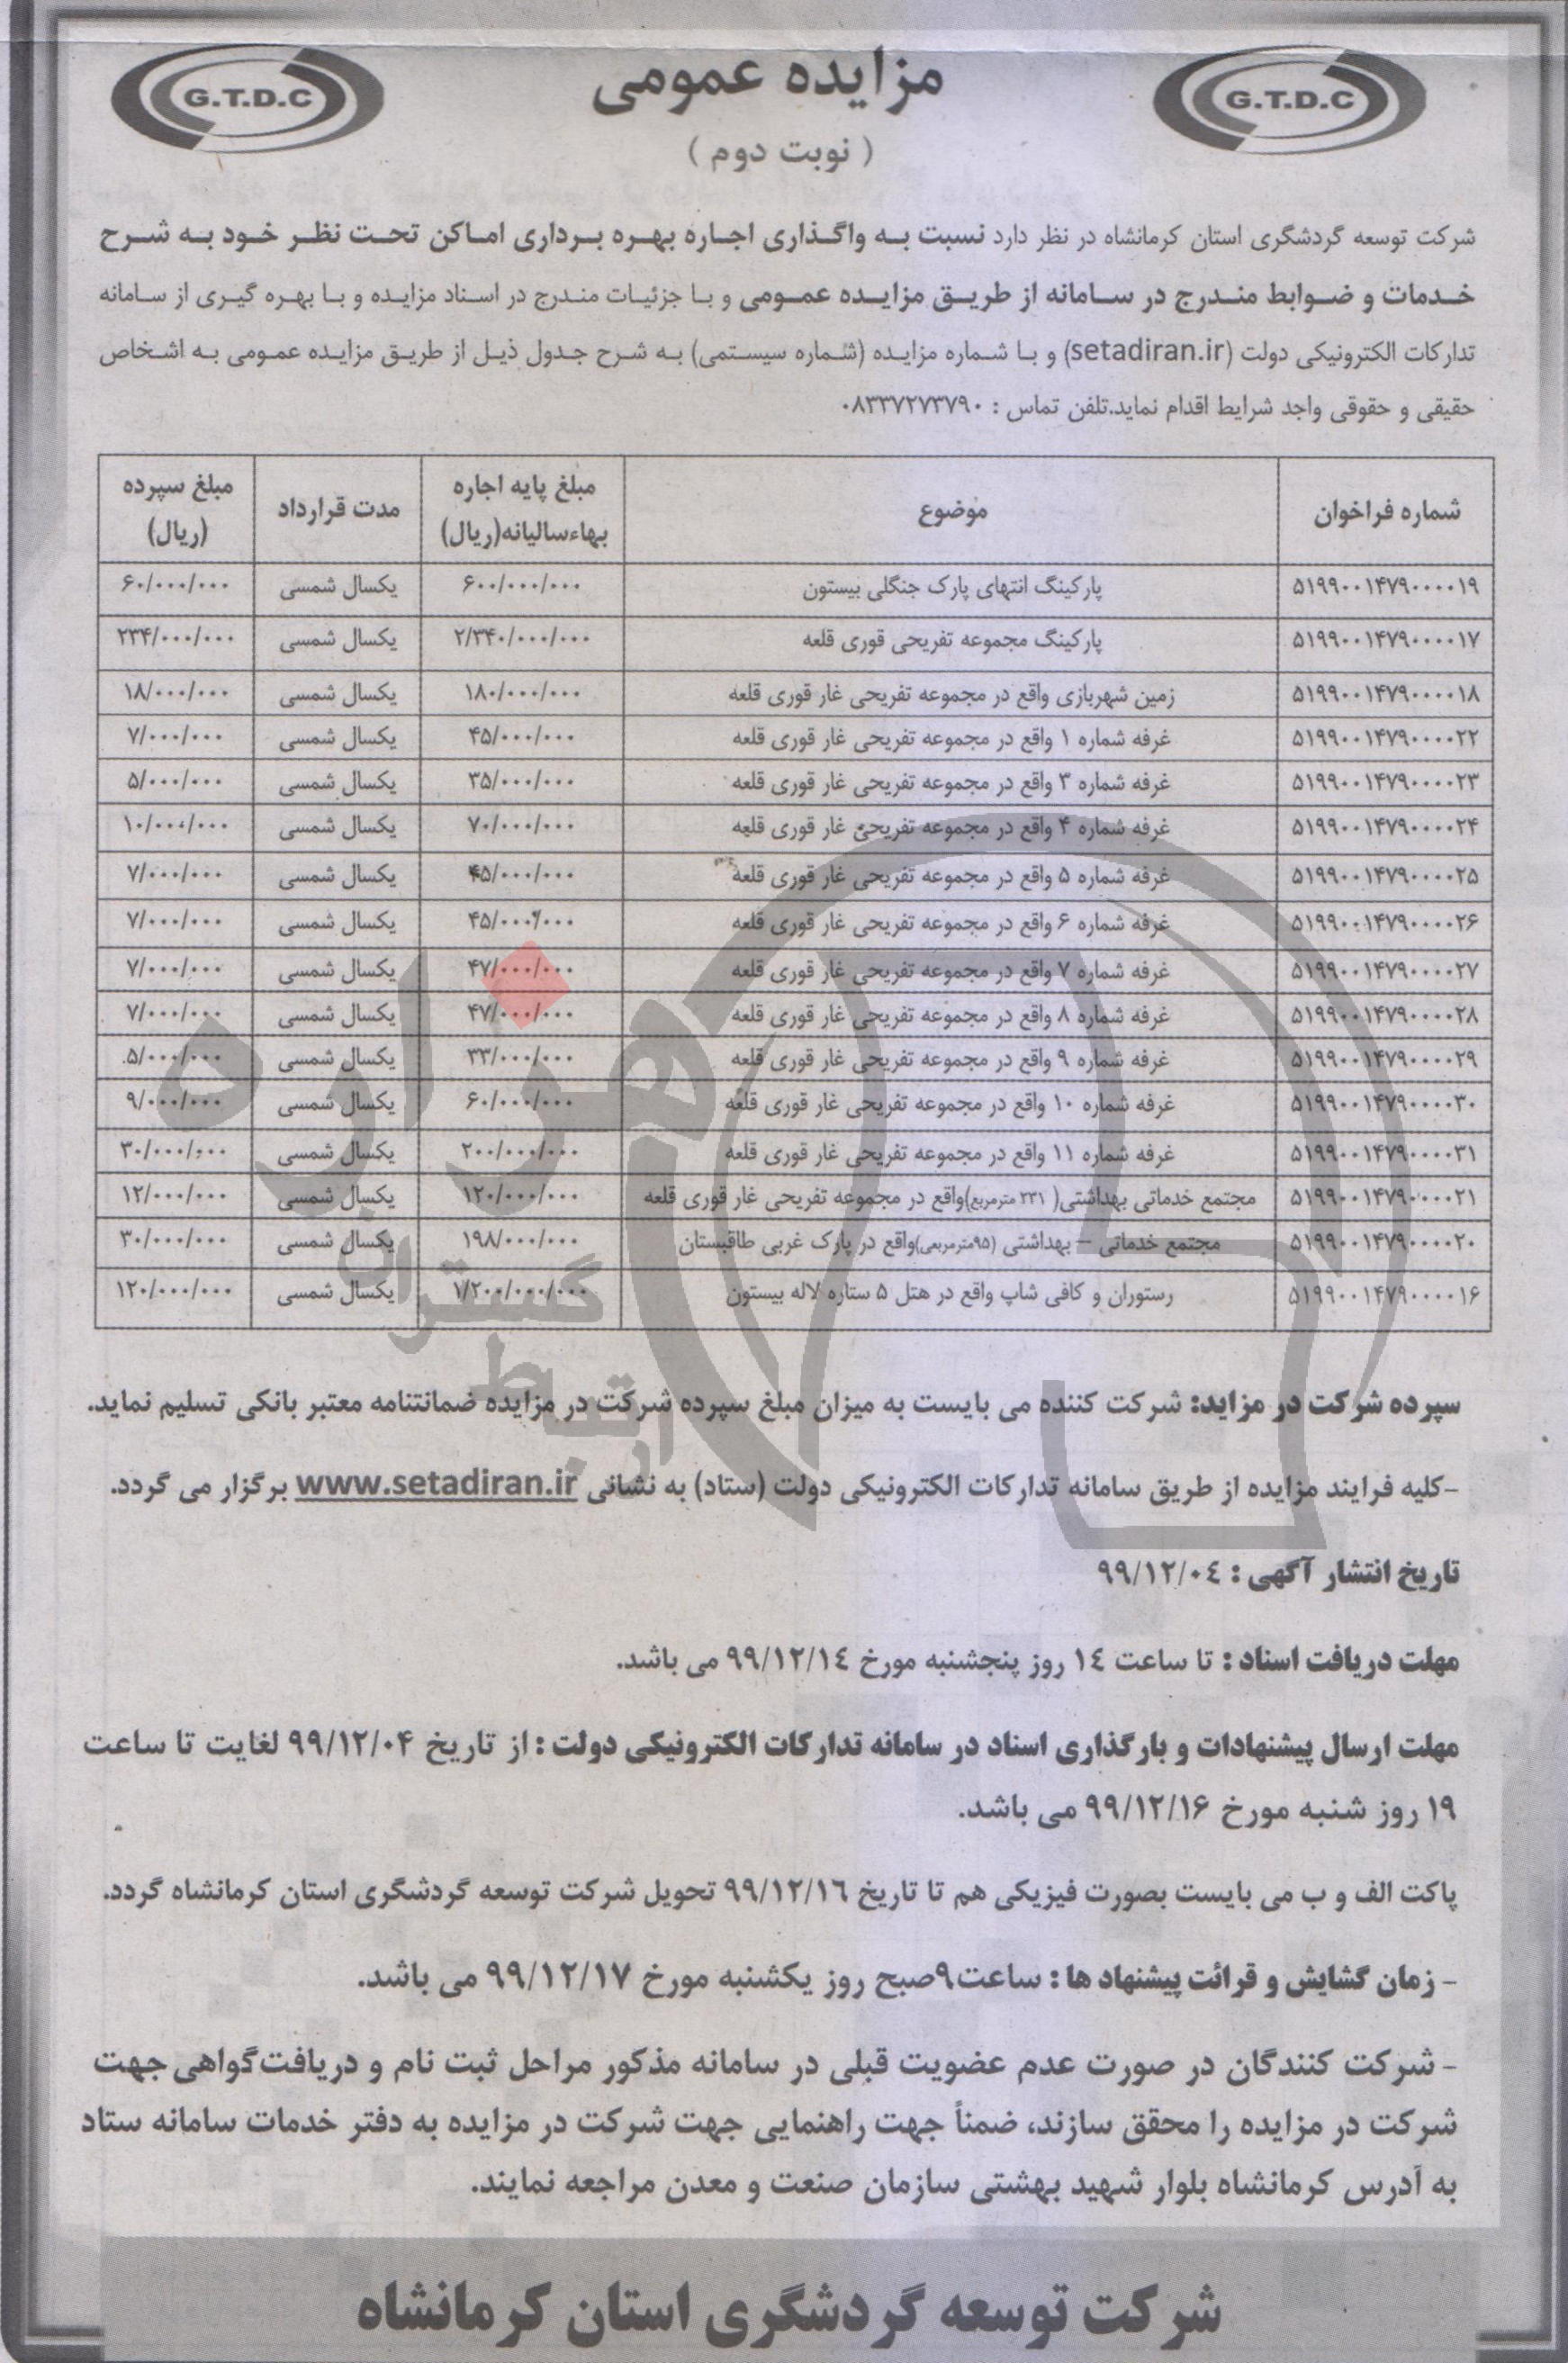 G.T.D.C
مزایده عمومی
G.T.D.C
( نوبت دوم )
شرکت توسعه گردشگری استان کرمانشاه در نظر دارد نسبت به واگذاری اجاره بهره برداری اماکن تحت نظر خود به شرح
خدمات و ضوابط مندرج در سامانه از طریق مزایده عمومی و با جزئیات مندرج در اسناد مزایده و با بهره گیری از سامانه
تدارکات الکترونیکی دولت (setadiran.ir) و با شماره مزایده (شماره سیستمی) به شرح جدول ذیل از طریق مزایده عمومی به اشخاص
حقیقی و حقوقی واجد شرایط اقدام نماید.تلفن تماس : ۰۸۳۳۷۲۷۳۷۹۰
شماره فراخوان موضوع مبلغ پایه اجاره بهاءسالیانه(ریال) مدت قرارداد مبلغ سپرده (ریال)
۵۱۹۹۰۰۱۴۷۹۰۰۰۰۱۹ پارکینگ انتهای پارک جنگلی بیستون ۶۰۰/۰۰۰/۰۰۰ یکسال شمسی ۶۰/۰۰۰/۰۰۰
۵۱۹۹۰۰۱۴۷۹۰۰۰۰۱۷ پارکینگ مجموعه تفریحی قوری قلعه ۲/۳۴۰/۰۰۰/۰۰۰ یکسال شمسی ۲۳۴/۰۰۰/۰۰۰
۵۱۹۹۰۰۱۴۷۹۰۰۰۰۱۸ زمین شهربازی واقع در مجموعه تفریحی غار قوری قلعه ۱۸۰/۰۰۰/۰۰۰ یکسال شمسی ۱۸/۰۰۰/۰۰۰
۵۱۹۹۰۰۱۴۷۹۰۰۰۰۲۲ غرفه شماره ۱ واقع در مجموعه تفریحی غار قوری قلعه ۴۵/۰۰۰/۰۰۰ یکسال شمسی ۷/۰۰۰/۰۰۰
۵۱۹۹۰۰۱۴۷۹۰۰۰۰۲۳ غرفه شماره ۳ واقع در مجموعه تفریحی غار قوری قلعه ۳۵/۰۰۰/۰۰۰ یکسال شمسی ۵/۰۰۰/۰۰۰
۵۱۹۹۰۰۱۴۷۹۰۰۰۰۲۴ غرفه شماره ۴ واقع در مجموعه تفریحی غار قوری قلعه ۷۰/۰۰۰/۰۰۰ یکسال شمسی ۱۰/۰۰۰/۰۰۰
۵۱۹۹۰۰۱۴۷۹۰۰۰۰۲۵ غرفه شماره ۵ واقع در مجموعه تفریحی غار قوری قلعه ۴۵/۰۰۰/۰۰۰ یکسال شمسی ۷/۰۰۰/۰۰۰
۵۱۹۹۰۰۱۴۷۹۰۰۰۰۲۶ غرفه شماره ۶ واقع در مجموعه تفریحی غار قوری قلعه ۴۵/۰۰۰/۰۰۰ یکسال شمسی ۷/۰۰۰/۰۰۰
۵۱۹۹۰۰۱۴۷۹۰۰۰۰۲۷ غرفه شماره ۷ واقع در مجموعه تفریحی غار قوری قلعه ۴۷/۰۰۰/۰۰۰ یکسال شمسی ۷/۰۰۰/۰۰۰
۵۱۹۹۰۰۱۴۷۹۰۰۰۰۲۸ غرفه شماره ۸ واقع در مجموعه تفریحی غار قوری قلعه ۴۷/۰۰۰/۰۰۰ یکسال شمسی ۷/۰۰۰/۰۰۰
۵۱۹۹۰۰۱۴۷۹۰۰۰۰۲۹ غرفه شماره ۹ واقع در مجموعه تفریحی غار قوری قلعه ۳۳/۰۰۰/۰۰۰ یکسال شمسی ۵/۰۰۰/۰۰۰
۵۱۹۹۰۰۱۴۷۹۰۰۰۰۳۰ غرفه شماره ۱۰ واقع در مجموعه تفریحی غار قوری قلعه ۶۰/۰۰۰/۰۰۰ یکسال شمسی ۹/۰۰۰/۰۰۰
۵۱۹۹۰۰۱۴۷۹۰۰۰۰۳۱ غرفه شماره ۱۱ واقع در مجموعه تفریحی غار قوری قلعه ۲۰۰/۰۰۰/۰۰۰ یکسال شمسی ۳۰/۰۰۰/۰۰۰
۵۱۹۹۰۰۱۴۷۹۰۰۰۰۲۱ مجتمع خدماتی بهداشتی( ۲۳۱ مترمربع)واقع در مجموعه تفریحی غار قوری قلعه ۱۲۰/۰۰۰/۰۰۰ یکسال شمسی ۱۲/۰۰۰/۰۰۰
۵۱۹۹۰۰۱۴۷۹۰۰۰۰۲۰ مجتمع خدماتی – بهداشتی (۹۵مترمربعی)واقع در پارک غربی طاقبستان ۱۹۸/۰۰۰/۰۰۰ یکسال شمسی ۳۰/۰۰۰/۰۰۰
۵۱۹۹۰۰۱۴۷۹۰۰۰۰۱۶ رستوران و کافی شاپ واقع در هتل ۵ ستاره لاله بیستون ۱/۲۰۰/۰۰۰/۰۰۰ یکسال شمسی ۱۲۰/۰۰۰/۰۰۰
سپرده شرکت در مزاید: شرکت کننده می بایست به میزان مبلغ سپرده شرکت در مزایده ضمانتنامه معتبر بانکی تسلیم نماید.
-کلیه فرایند مزایده از طریق سامانه تدارکات الکترونیکی دولت (ستاد) به نشانی www.setadiran.ir برگزار می گردد.
تاریخ انتشار آگهی : ۹۹/۱۲/۰٤
مهلت دریافت اسناد : تا ساعت ۱٤ روز پنجشنبه مورخ ۹۹/۱۲/۱٤ می باشد.
مهلت ارسال پیشنهادات و بارگذاری اسناد در سامانه تدارکات الکترونیکی دولت : از تاریخ ۹۹/۱۲/۰۴ لغایت تا ساعت
۱۹ روز شنبه مورخ ۹۹/۱۲/۱۶ می باشد.
پاکت الف و ب می بایست بصورت فیزیکی هم تا تاریخ ۹۹/۱۲/۱٦ تحویل شرکت توسعه گردشگری استان کرمانشاه گردد.
- زمان گشایش و قرائت پیشنهاد ها : ساعت۹صبح روز یکشنبه مورخ ۹۹/۱۲/۱۷ می باشد.
- شرکت کنندگان در صورت عدم عضویت قبلی در سامانه مذکور مراحل ثبت نام و دریافت‌گواهی جهت
شرکت در مزایده را محقق سازند، ضمناً جهت راهنمایی جهت شرکت در مزایده به دفتر خدمات سامانه ستاد
به آدرس کرمانشاه بلوار شهید بهشتی سازمان صنعت و معدن مراجعه نمایند.
شرکت توسعه گردشگری استان کرمانشاه